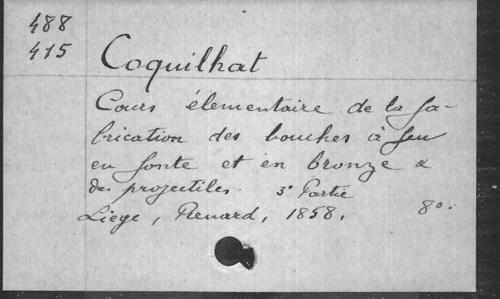 488
415
Coquilhat
Cours élementaire de la fa-
brication des bouches à feu
en fonte et en bronze &
des projectiles. 3e Partie
Liege, Renard, 1858. 8o.